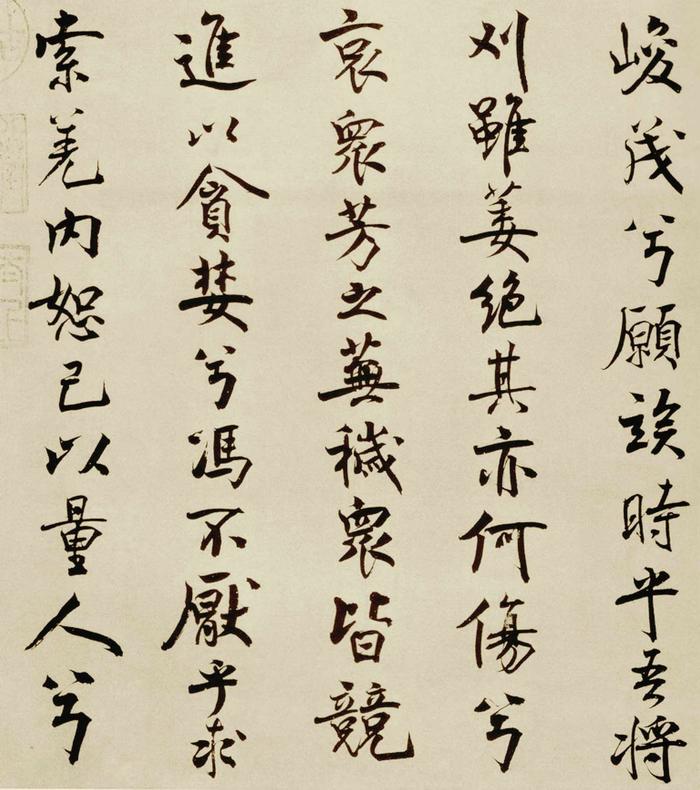 峻茂兮願竢時乎吾將
刈雖萎絕其亦何傷兮
哀衆芳之蕪穢衆皆競
進以貪婪兮馮不厭乎求
索羌內恕己以量人兮